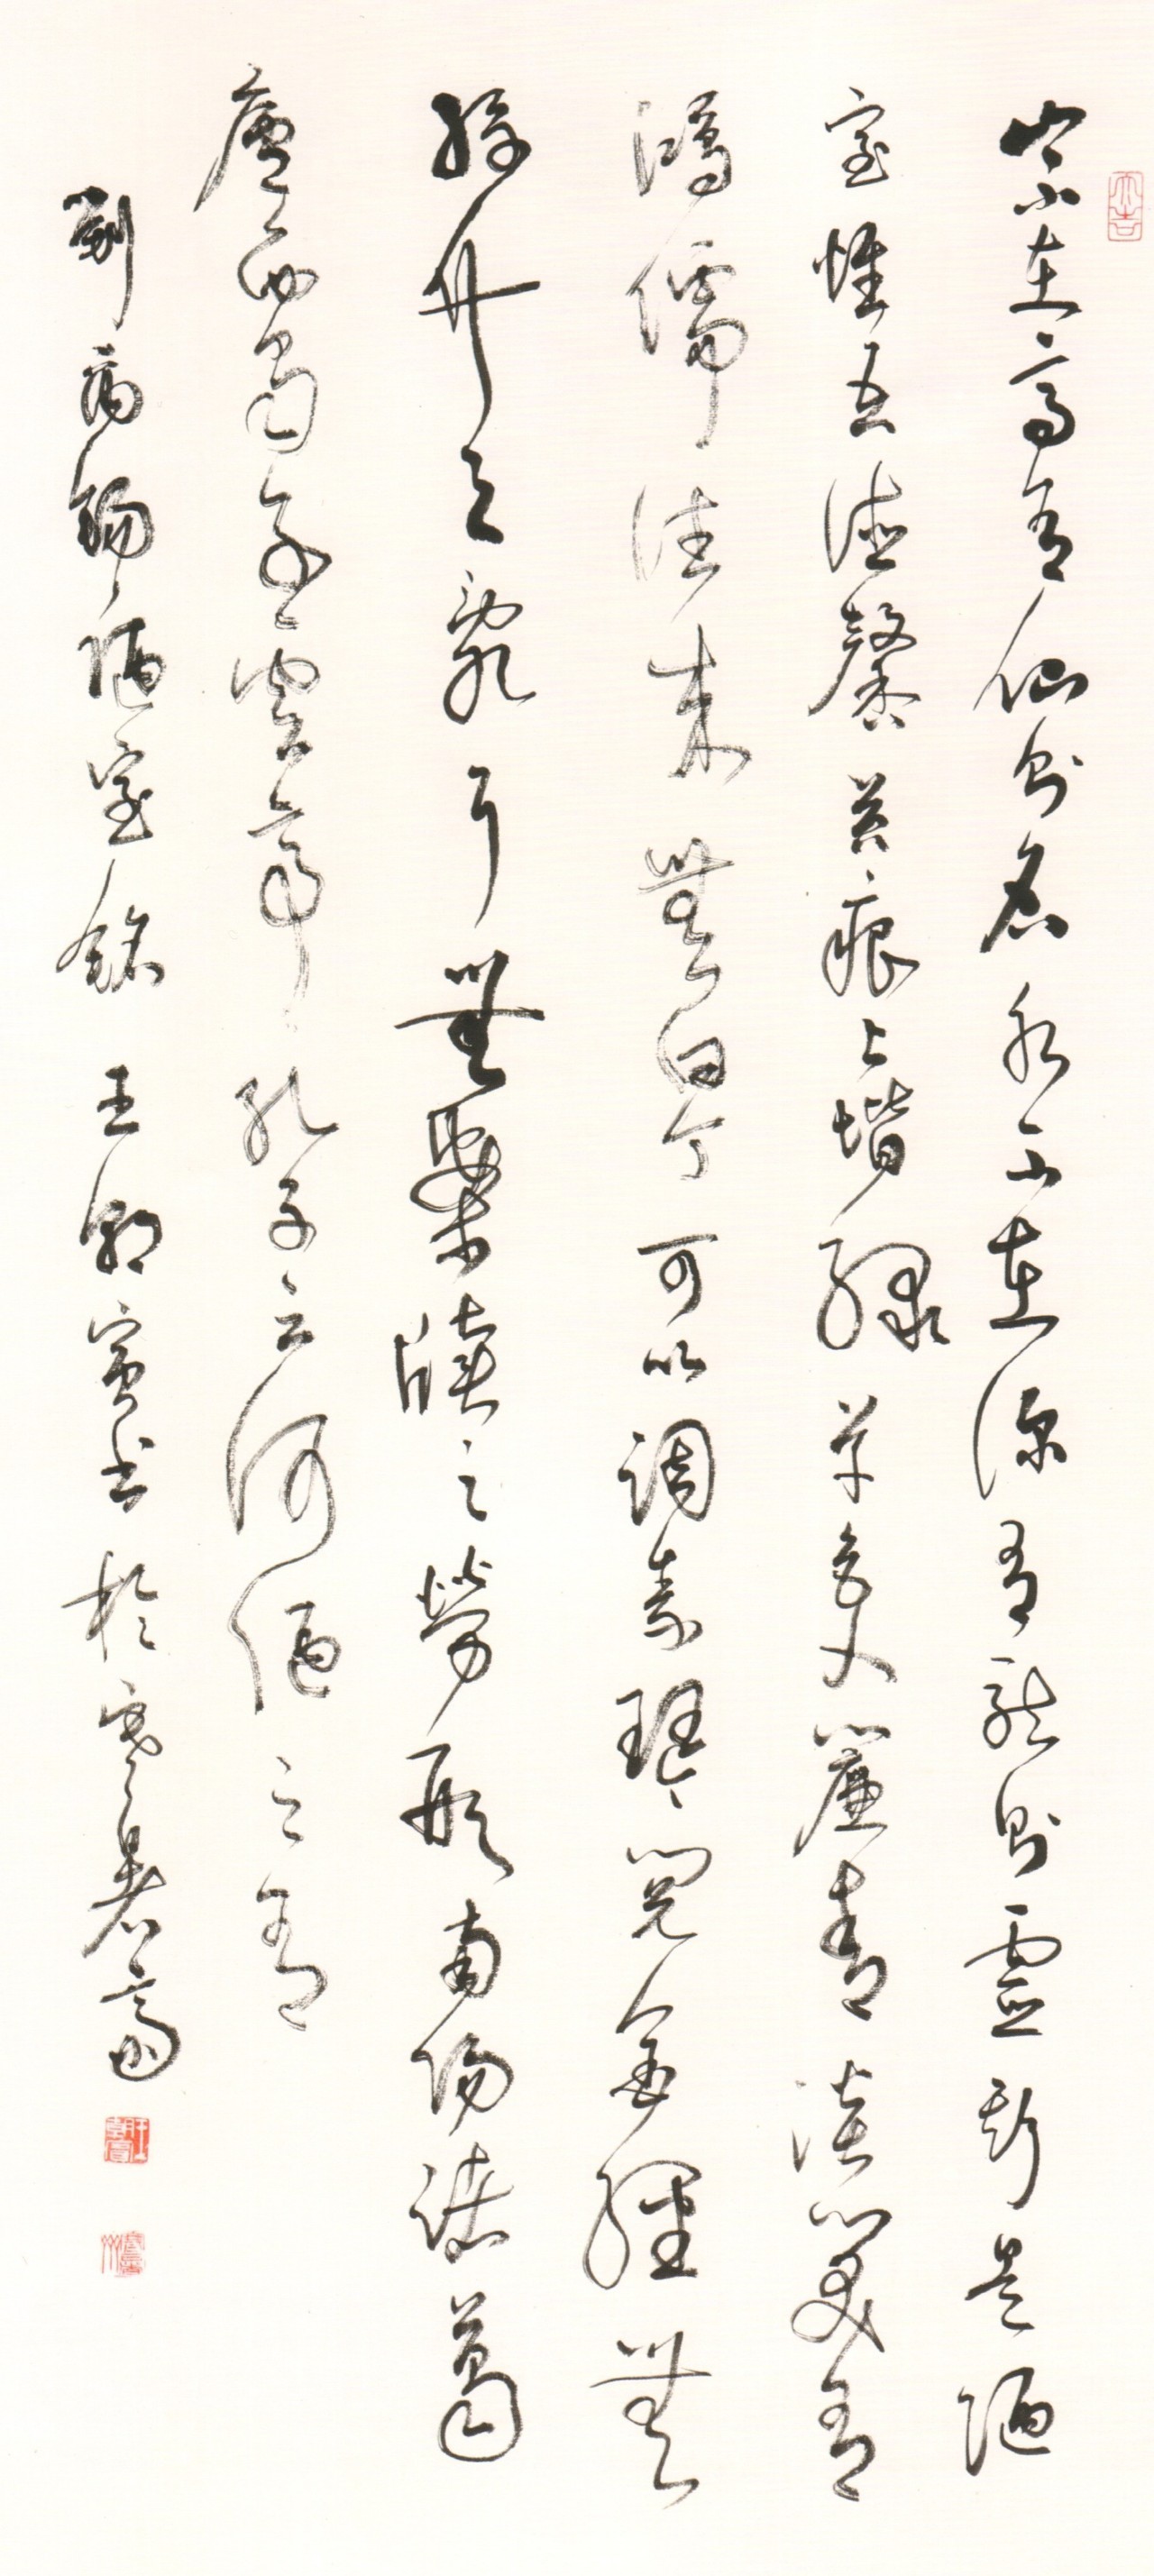 山不在高有仙則名水不在深有龍則靈斯是陋
室惟吾德馨苔痕上堦綠草色入簾青談笑有
鴻儒往來無白丁可以調素琴閱金經無
絲竹之亂耳無案牘之勞形南陽諸葛
廬西蜀子雲亭孔子云何陋之有
劉禹錫陋室銘 王朝賓書於
大吉